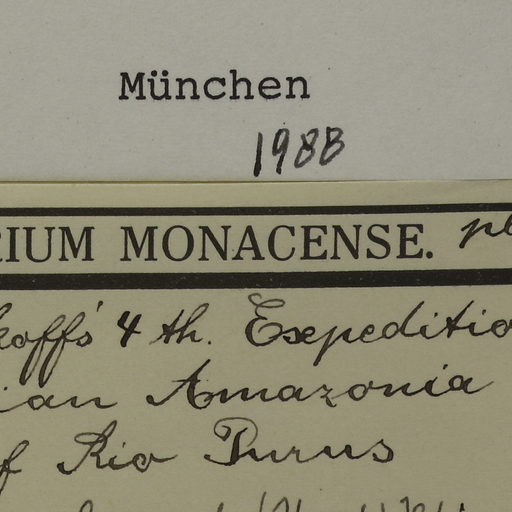 München
1988
RIUM MONACENSE.
koff's 4th. Expeditio
ian Amazonia
of Rio Purus